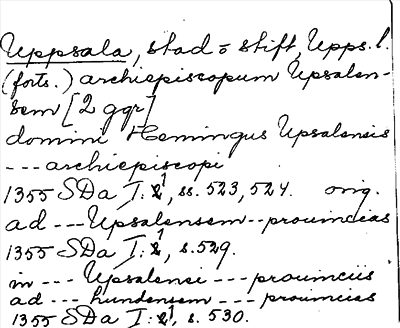 Uppsala, stad o stift, Upps. l.
(forts.) archiepiscopum Upsalen-
sem [2 ggr]
domini Hemingus Upsalensis
--- archiepiscopi
1355 SDa I:1, ss. 523, 524. orig.
ad --- Upsalensem -- prouincias
1355 SDa I:1, s. 529.
in --- Upsalensi --- prouinciis
ad --- hundensem --- prouincias
1355 SDa I:1, s. 530.